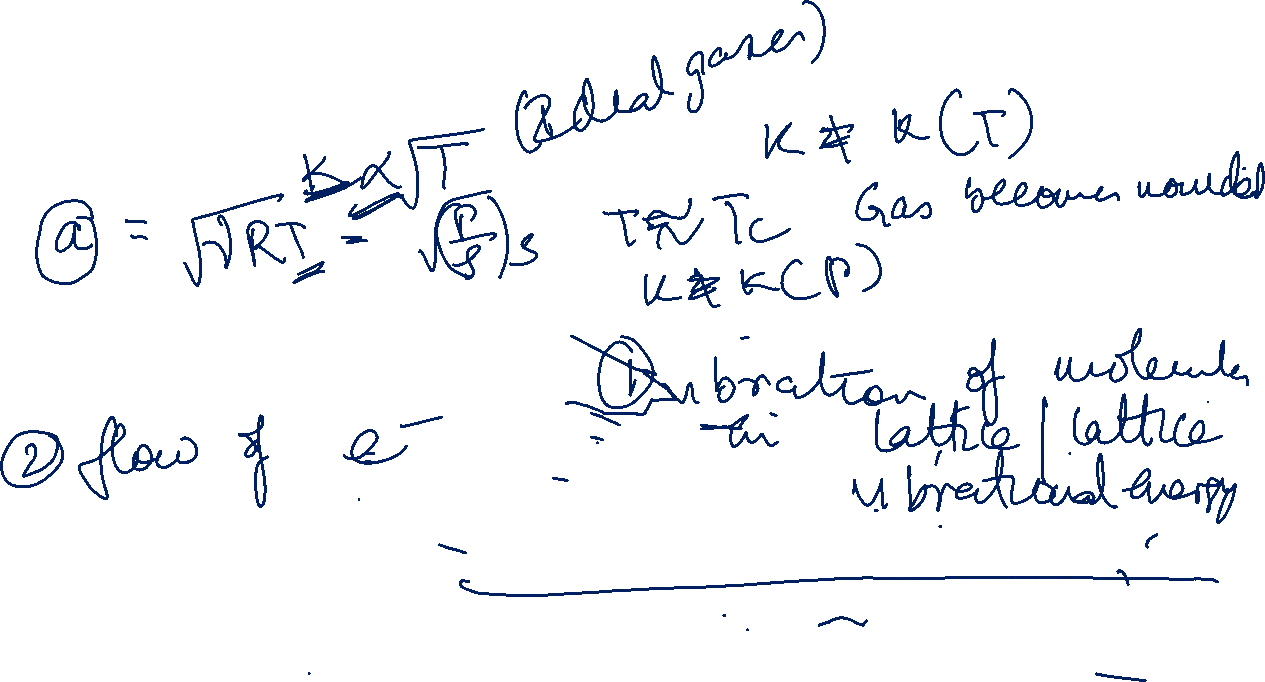 K ∝ √T (Ideal gases)
K ≠ K(T)
a = √γRT = √(P/ρ)s
T ≈ Tc Gas becomes
K ≠ K(P)
① vibration of molecules
in lattice / lattice
vibrational energy
② flow of e⁻